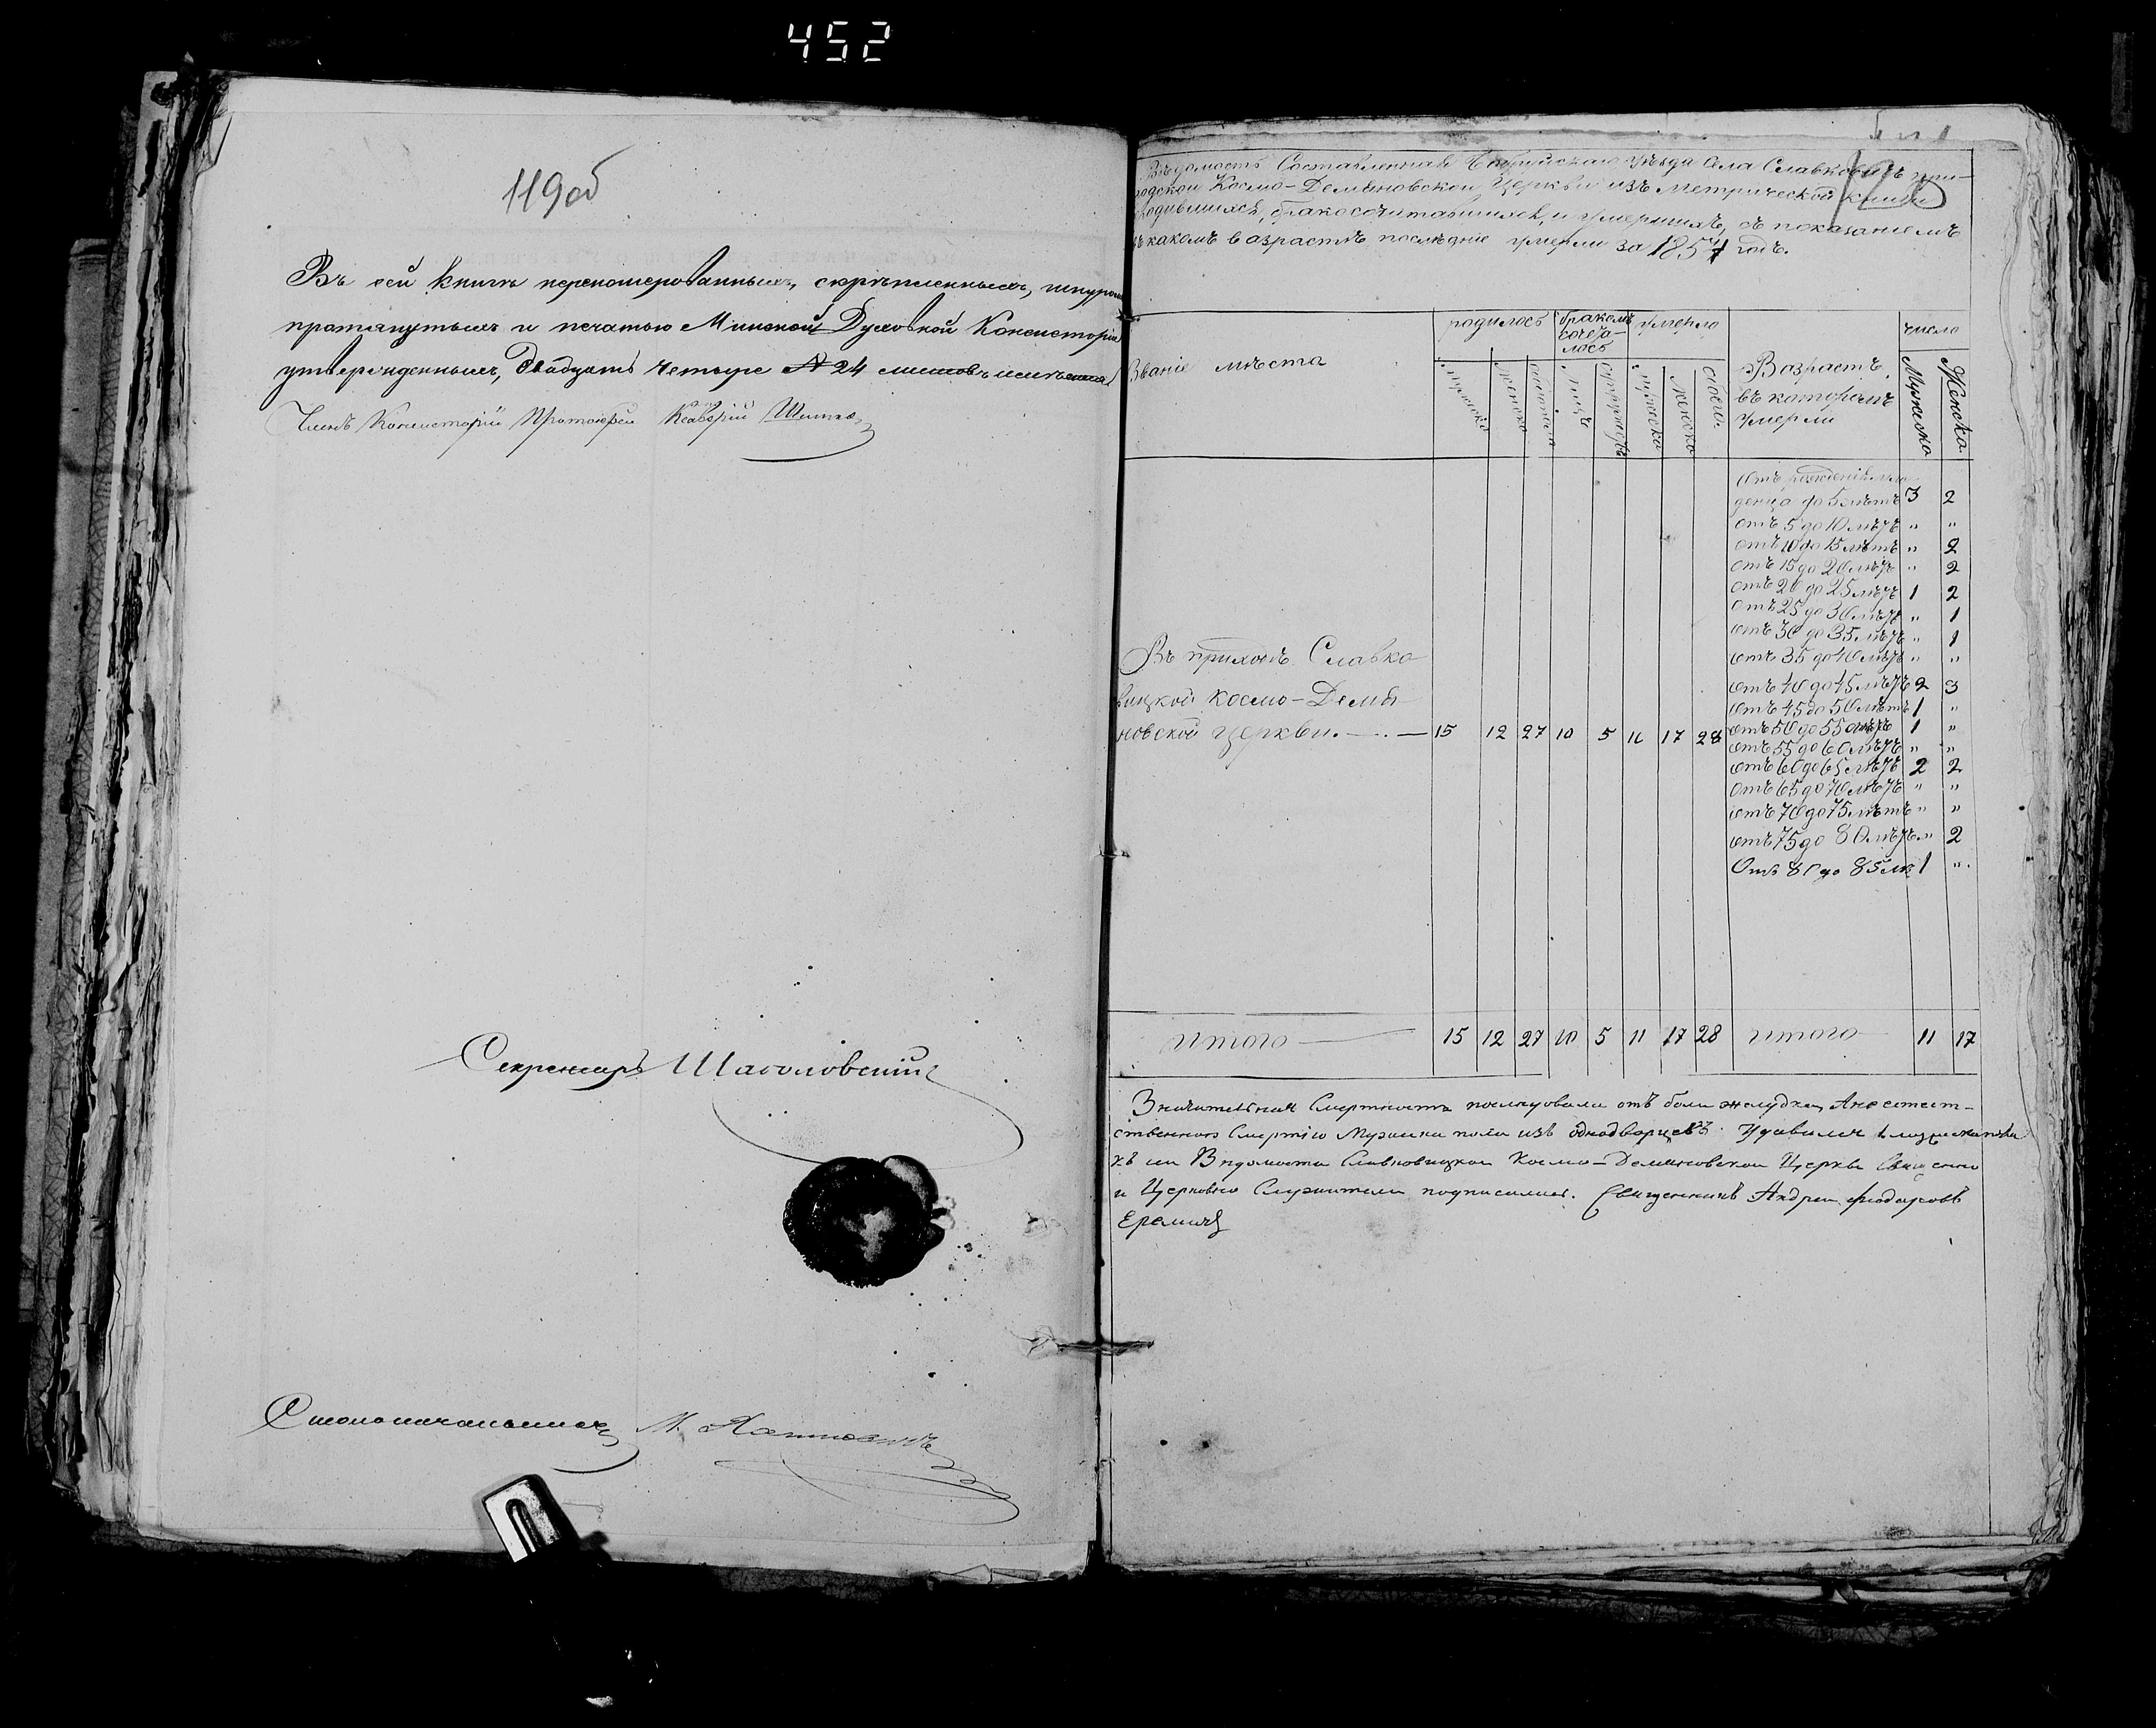 452
119об
Въ сей книгѣ перенумерованныхъ, скрѣпленныхъ, шнуромъ
протянутыхъ и печатью Минской Духовной Консисторіи
утвержденныхъ, двадцать четыре № 24 листовъ имѣется
Членъ Консисторіи Протоіерей
Секретарь
Столоначальникъ М.
120
Вѣдомость Составленная уѣзда Села Славковичъ при-
ходской Космо-Демьяновской Церкви изъ метрической книги
родившихся, бракосочитавшихся, и умершихъ, съ показаніемъ
въ какомъ возрастѣ послѣдніе умерли за 1857 годъ.
Званіе мѣста
родилось бракомъ сочета-лось умерло
Возрастъ въ которомъ умерли
число
мужеска женска обоего лицъ супружествъ мужеска женска обоего Мужеска Женска
Отъ рожденія мла-
денца до 5 лѣтъ 3 2
отъ 5 до 10 лѣтъ " "
отъ 10 до 15 лѣтъ " 2
отъ 15 до 20 лѣтъ " 2
отъ 20 до 25 лѣтъ 1 2
отъ 25 до 30 лѣтъ " 1
отъ 30 до 35 лѣтъ " 1
отъ 35 до 40 лѣтъ " "
отъ 40 до 45 лѣтъ 2 3
отъ 45 до 50 лѣтъ 1 "
отъ 50 до 55 лѣтъ 1 "
отъ 55 до 60 лѣтъ " "
отъ 60 до 65 лѣтъ 2 2
отъ 65 до 70 лѣтъ " "
отъ 70 до 75 лѣтъ " "
отъ 75 до 80 лѣтъ " 2
Отъ 80 до 85 лѣ 1 "
Въ приходѣ Славко
вицкой Космо-Демья
новской церкви. 15 12 27 10 5 11 17 28
Итого 15 12 27 10 5 11 17 28 Итого 11 17
Значительная Смертность послѣдовала отъ боли желудка, Анеестест-
ственною Смертію Мужеска пола изъ однодворцевъ Удавился
къ сей Вѣдомости Славковицкой Космо-Демьяновской Церкви Священно
и Церковно Служители подписались. Священникъ Андрей